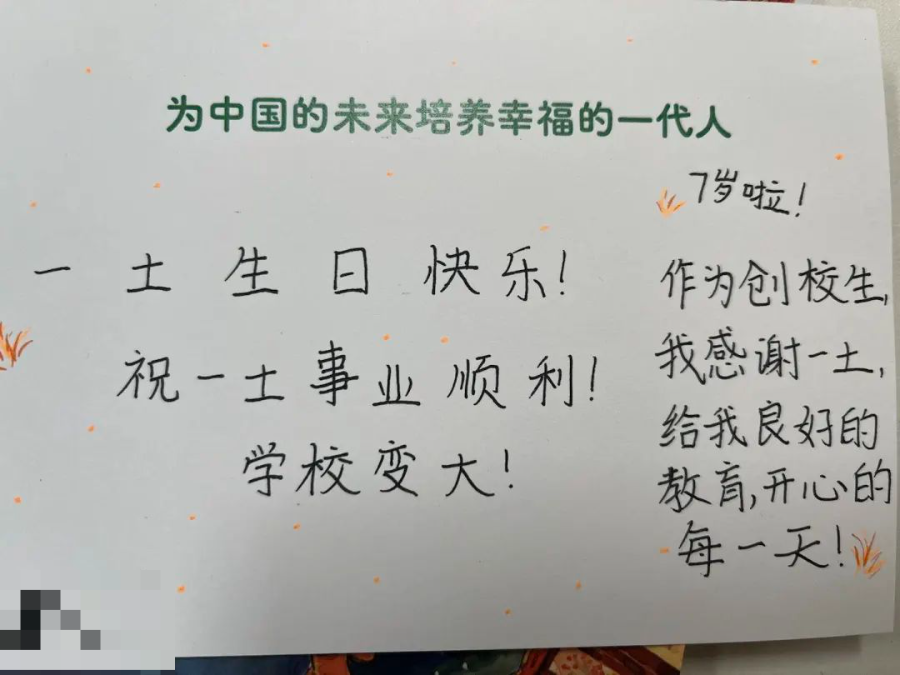 为中国的未来培养幸福的一代人
一土生日快乐!
祝一土事业顺利!
学校变大!
7岁啦!
作为创校生,
我感谢一土,
给我良好的
教育,开心的
每一天!